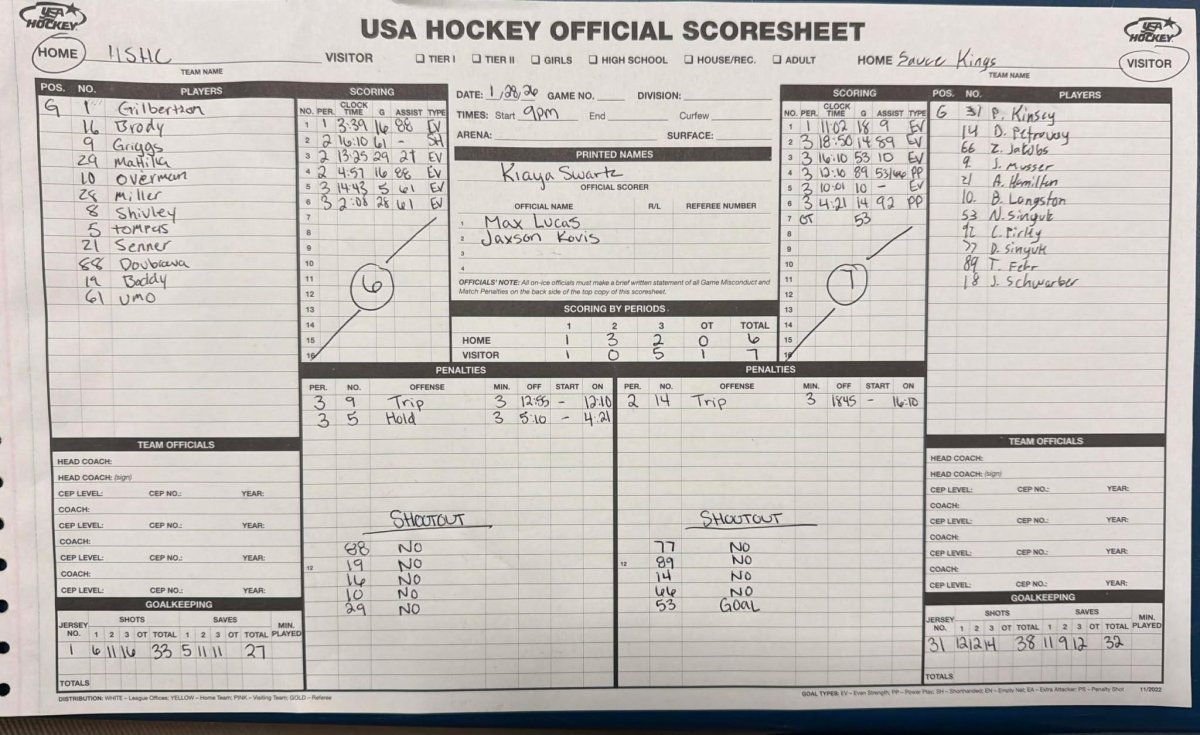 USA HOCKEY
USA HOCKEY OFFICIAL SCORESHEET
USA HOCKEY
HOME HSHC VISITOR ☐ TIER I ☐ TIER II ☐ GIRLS ☐ HIGH SCHOOL ☐ HOUSE/REC. ☐ ADULT HOME Sauce Kings VISITOR
TEAM NAME TEAM NAME
POS. NO. PLAYERS
G 1 Gilbertson
16 Brody
9 Griggs
29 Matilka
10 Overman
28 Miller
8 Shivley
5 Tompus
21 Senner
88 Doubrava
19 Boddy
61 UMO
SCORING
NO. PER. CLOCK TIME G ASSIST TYPE
1 1 3:39 16 88 EV
2 2 16:10 61 - SH
3 2 13:25 29 21 EV
4 2 4:57 16 88 EV
5 3 14:43 5 61 EV
6 3 2:08 28 61 EV
7
8
9
10
11
12
13
14
15
16
6
DATE: 1/28/26 GAME NO. DIVISION:
TIMES: Start 9pm End Curfew
ARENA: SURFACE:
PRINTED NAMES
Kiaya Swartz
OFFICIAL SCORER
OFFICIAL NAME R/L REFEREE NUMBER
1 Max Lucas
2 Jaxson Kovis
3
4
OFFICIALS' NOTE: All on-ice officials must make a brief written statement of all Game Misconduct and
Match Penalties on the back side of the top copy of this scoresheet.
SCORING BY PERIODS
1 2 3 OT TOTAL
HOME 1 3 2 0 6
VISITOR 1 0 5 1 7
SCORING
NO. PER. CLOCK TIME G ASSIST TYPE
1 1 11:02 18 9 EV
2 3 18:50 14 89 EV
3 3 16:10 53 10 EV
4 3 12:10 89 53/66 PP
5 3 10:01 10 - EV
6 3 4:21 14 92 PP
7 OT 53
8
9
10
11
12
13
14
15
16
7
POS. NO. PLAYERS
G 31 P. Kinsey
14 D. Petrovay
66 Z. Jacobs
9 J. Musser
21 A. Hamilton
10 B. Langston
53 N. Sinyuk
92 C. Pirky
77 D. Sinyuk
89 T. Fehr
18 J. Schwarber
PENALTIES
PER. NO. OFFENSE MIN. OFF START ON
3 9 Trip 3 12:55 - 12:10
3 5 Hold 3 5:10 - 4:21
SHOOTOUT
88 NO
12 19 NO
16 NO
10 NO
29 NO
PENALTIES
PER. NO. OFFENSE MIN. OFF START ON
2 14 Trip 3 1845 - 16:10
SHOOTOUT
77 NO
12 89 NO
14 NO
66 NO
53 GOAL
TEAM OFFICIALS
HEAD COACH:
HEAD COACH: (sign)
CEP LEVEL: CEP NO.: YEAR:
COACH:
CEP LEVEL: CEP NO.: YEAR:
COACH:
CEP LEVEL: CEP NO.: YEAR:
COACH:
CEP LEVEL: CEP NO.: YEAR:
GOALKEEPING
JERSEY NO. SHOTS 1 2 3 OT TOTAL SAVES 1 2 3 OT TOTAL MIN. PLAYED
1 6 11 16 33 5 11 11 27
TOTALS
TEAM OFFICIALS
HEAD COACH:
HEAD COACH: (sign)
CEP LEVEL: CEP NO.: YEAR:
COACH:
CEP LEVEL: CEP NO.: YEAR:
COACH:
CEP LEVEL: CEP NO.: YEAR:
COACH:
CEP LEVEL: CEP NO.: YEAR:
GOALKEEPING
JERSEY NO. SHOTS 1 2 3 OT TOTAL SAVES 1 2 3 OT TOTAL MIN. PLAYED
31 12 12 14 38 11 9 12 32
TOTALS
DISTRIBUTION: WHITE – League Offices; YELLOW – Home Team; PINK – Visiting Team; GOLD – Referee
GOAL TYPES: EV – Even Strength; PP – Power Play; SH – Shorthanded; EN – Empty Net; EA – Extra Attacker; PS – Penalty Shot 11/2022